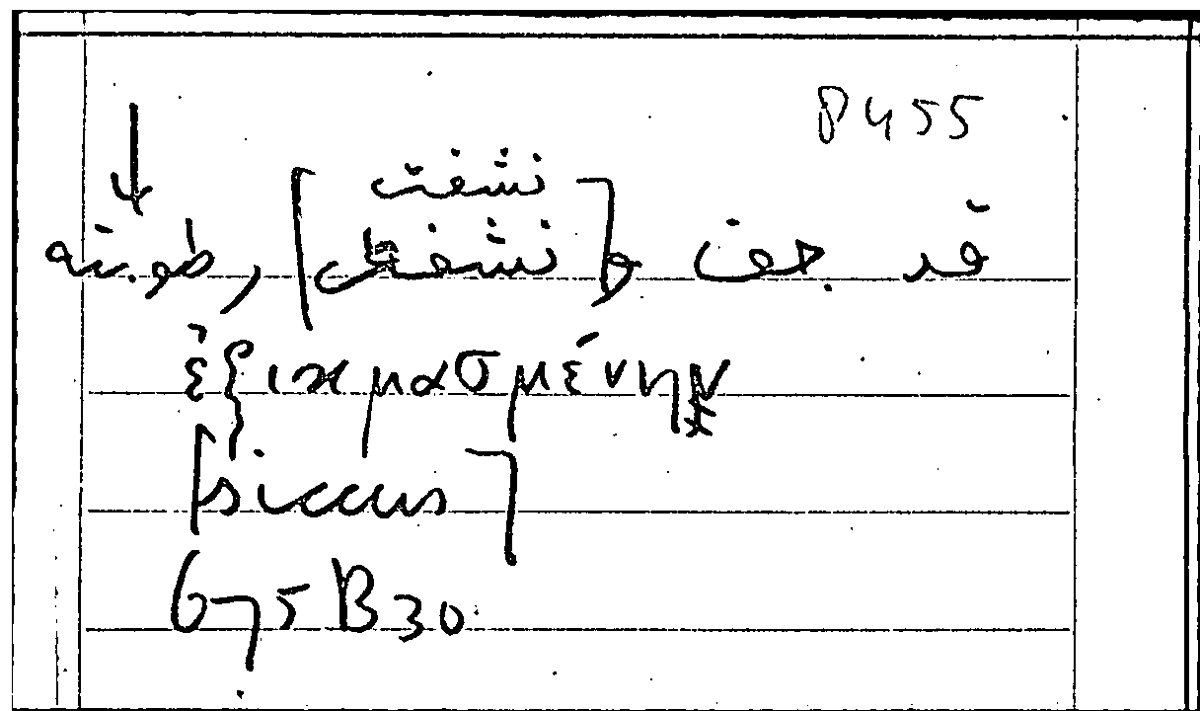 P 455
نشفت
قد جف و[نشفت] رطوبته
ἐξικμασμένην
[siccus]
675 B 30